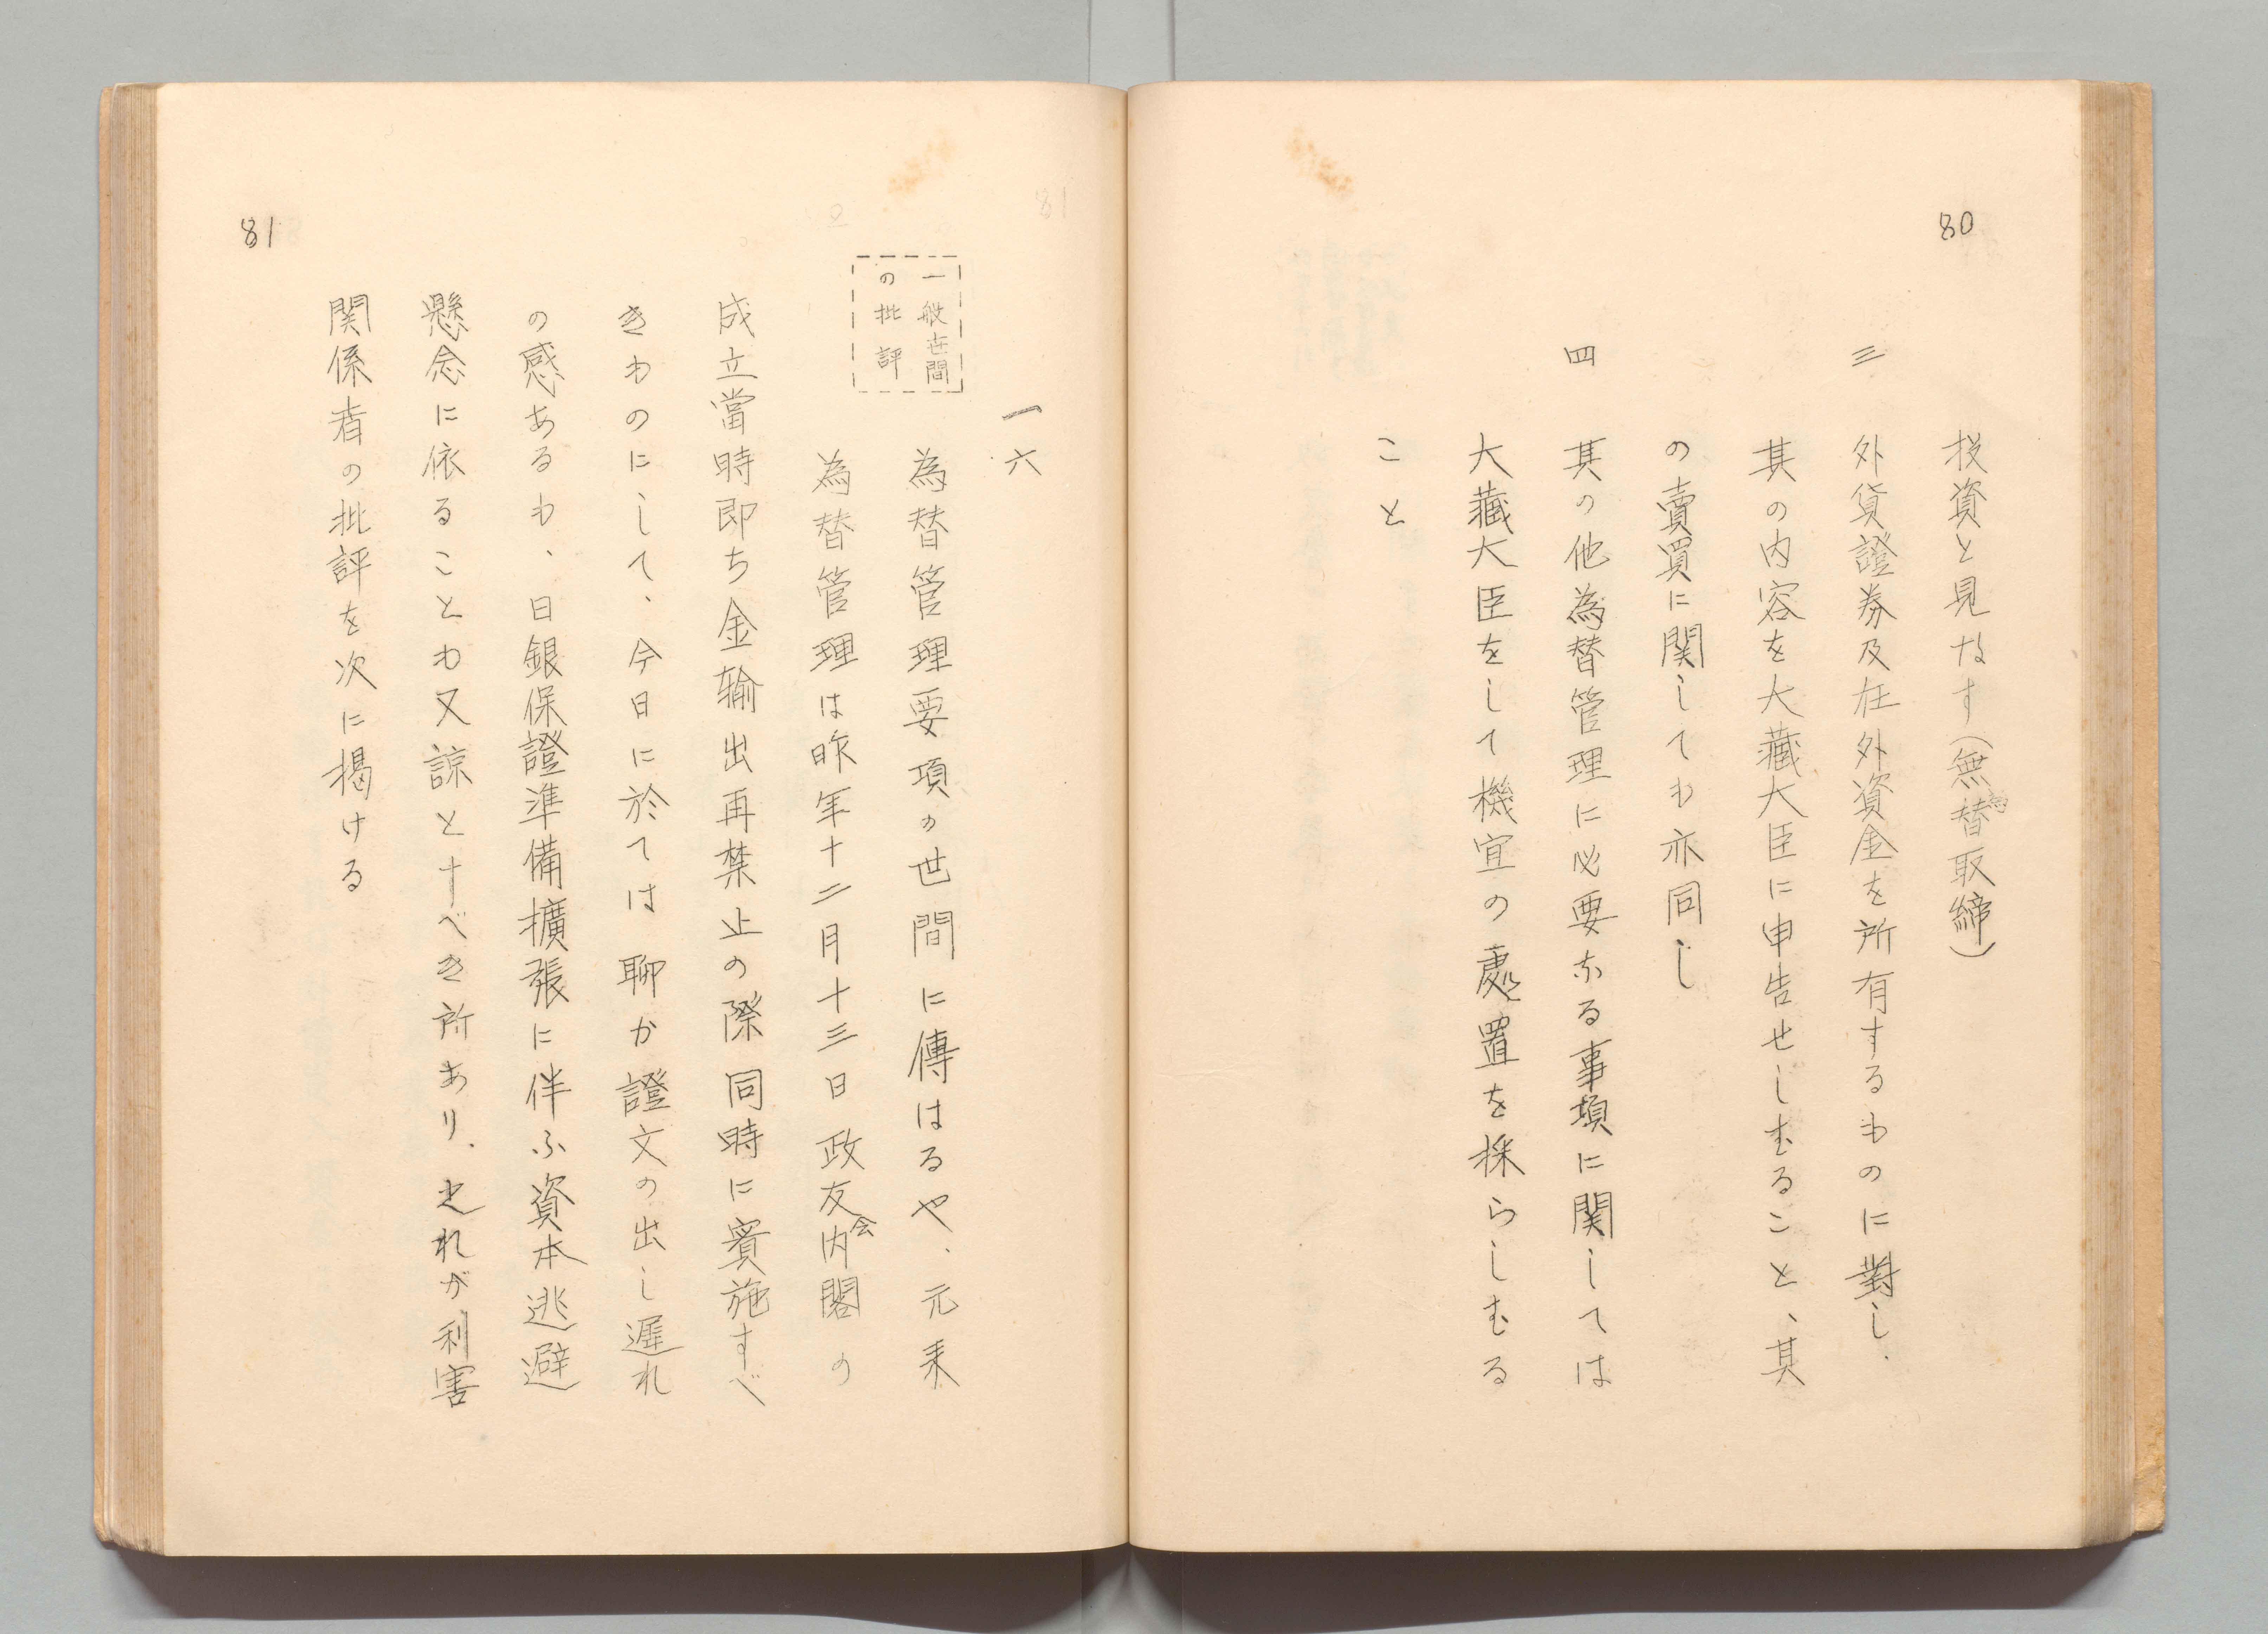 80
投資と見なす(無為替取締)
三 外貨證券及在外資金を所有するものに對し、
其の内容を大藏大臣に申告せしむること、其
の賣買に関しても亦同し
四 其の他為替管理に必要なる事項に関しては
大藏大臣をして機宜の處置を採らしむる
こと
一六
一般世間
の批評
為替管理要項の世間に傳はるや、元来
為替管理は昨年十二月十三日政友会内閣の
成立當時即ち金輸出再禁止の際同時に實施すべ
きものにして、今日に於ては聊か證文の出し遅れ
の感あるも、日銀保證準備擴張に伴ふ資本逃避
懸念に依ることも又諒とすべき所あり、之れが利害
関係者の批評を次に掲ける
81